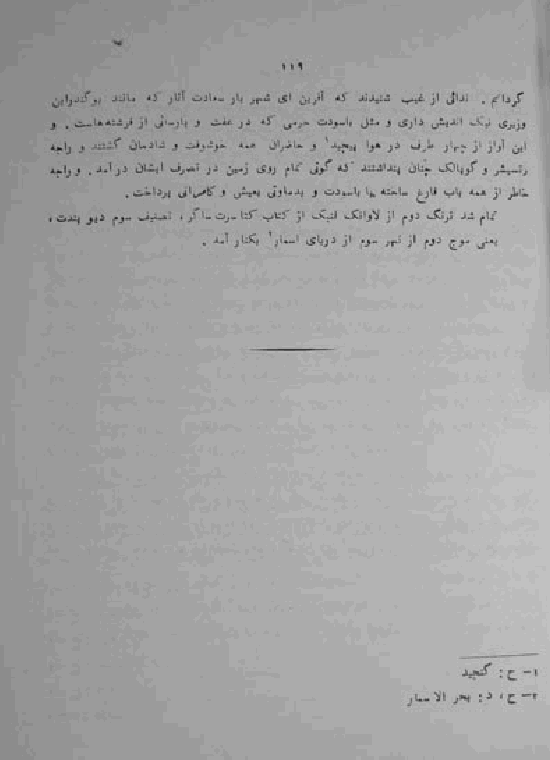 ۱۱۹
گردانم . ندائی از غیب شنیدند که آفرین ای شهر یار سعادت آثار که مانند یوگندراین
وزیری نیک اندیش داری و مثل باسودت حرمی که در عفت و پارسائی از فرشته‌هاست . و
این آواز از چهار طرف در هوا پیچید۱ و حاضران همه خوشوقت و شادمان گشتند و راجه
و گوپالک چنان پنداشتند که گوئی تمام روی زمین در تصرف ایشان در آمد . و راجه
خاطر از همه باب فارغ ساخته با باسودت و پدماوتی بعیش و کامرانی پرداخت .
تمام شد ترنگ دوم از لاوانک لنبک از کتاب کتا سرت ساگر، تصنیف سوم دیو پندت ،
یعنی موج دوم از نهر سوم از دریای اسمار۲ بکنار آمد .
۱- ح : گنجید
۲- ح ، د : بحر الاسمار